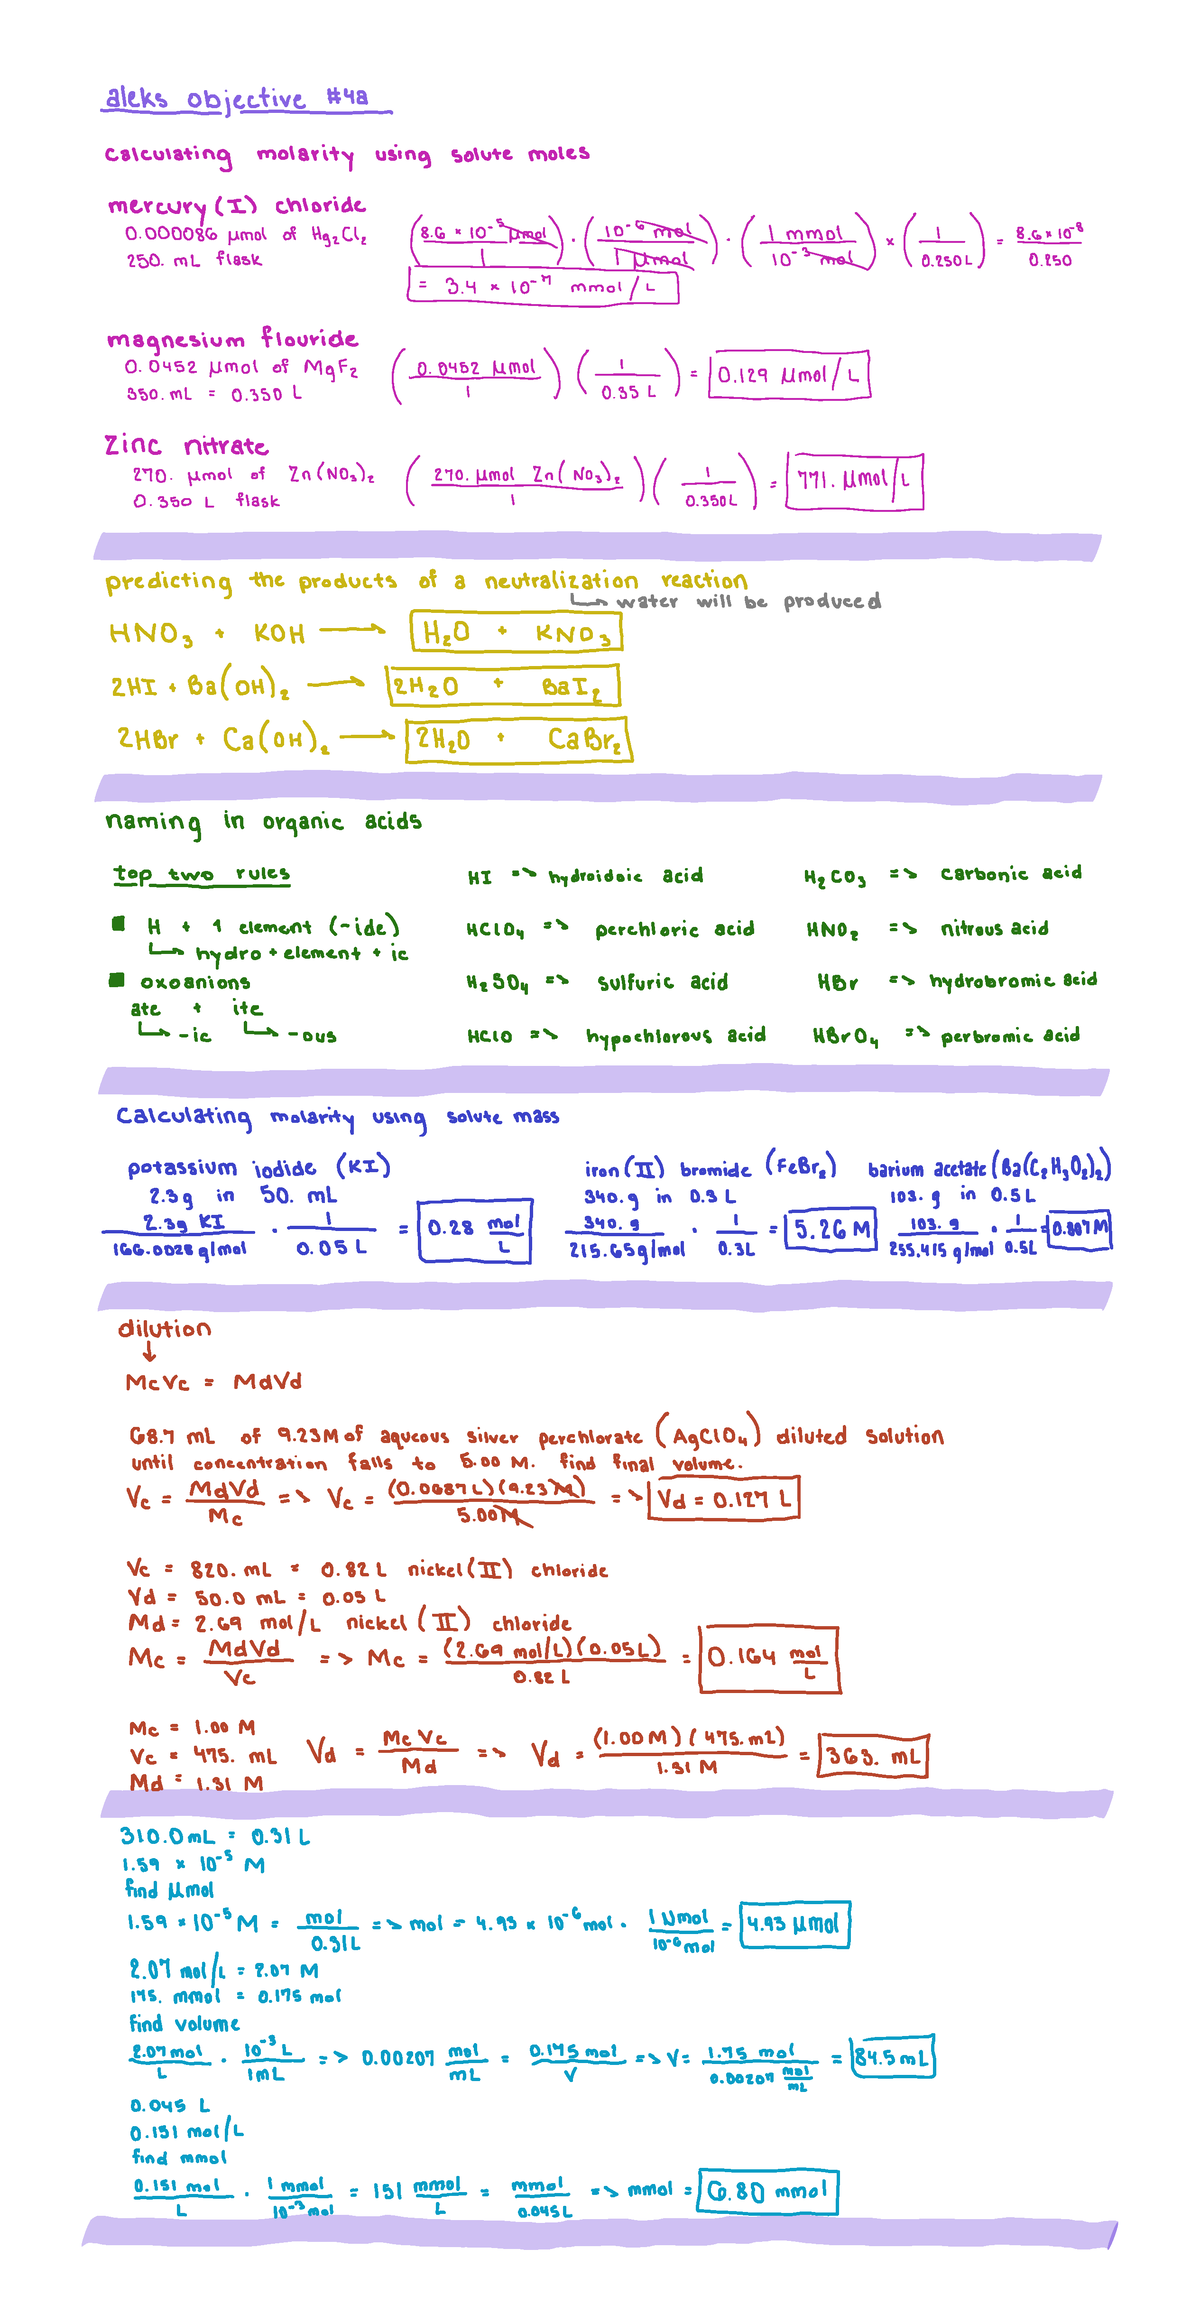 aleks objective #4a
calculating molarity using solute moles
mercury (I) chloride
0.000086 μmol of Hg₂Cl₂
250. mL flask
(8.6 × 10⁻⁵ μmol / 1) · (10⁻⁶ mol / 1 μmol) · (1 mmol / 10⁻³ mol) × (1 / 0.250L) = 8.6 × 10⁻⁸ / 0.250
= 3.4 × 10⁻⁷ mmol/L
magnesium flouride
0.0452 μmol of MgF₂
350. mL = 0.350 L
(0.0452 μmol / 1) (1 / 0.35 L) = 0.129 μmol/L
Zinc nitrate
270. μmol of Zn(NO₃)₂
0.350 L flask
(270. μmol Zn(NO₃)₂ / 1) (1 / 0.350L) = 771. μmol/L
predicting the products of a neutralization reaction
↳ water will be produced
HNO₃ + KOH → H₂O + KNO₃
2HI + Ba(OH)₂ → 2H₂O + BaI₂
2HBr + Ca(OH)₂ → 2H₂O + CaBr₂
naming in organic acids
top two rules
■ H + 1 element (-ide)
↳ hydro + element + ic
■ oxoanions
ate + ite
↳ -ic ↳ -ous
HI => hydroidoic acid
HClO₄ => perchloric acid
H₂SO₄ => sulfuric acid
HClO => hypochlorous acid
H₂CO₃ => carbonic acid
HNO₂ => nitrous acid
HBr => hydrobromic acid
HBrO₄ => perbromic acid
Calculating molarity using solute mass
potassium iodide (KI)
2.3g in 50. mL
2.3g KI / 166.0028 g/mol · 1 / 0.05 L = 0.28 mol/L
iron (II) bromide (FeBr₂)
340. g in 0.3 L
340. g / 215.65 g/mol · 1 / 0.3L = 5.26 M
barium acetate (Ba(C₂H₃O₂)₂)
103. g in 0.5L
103. g / 255.415 g/mol · 1 / 0.5L = 0.807 M
dilution
↓
McVc = MdVd
68.7 mL of 9.23M of aqueous silver perchlorate (AgClO₄) diluted solution
until concentration falls to 5.00 M. find final volume.
Vc = MdVd / Mc => Vc = (0.0687 L)(9.23M) / 5.00M => Vd = 0.127 L
Vc = 820. mL = 0.82 L nickel (II) chloride
Vd = 50.0 mL = 0.05 L
Md = 2.69 mol/L nickel (II) chloride
Mc = MdVd / Vc => Mc = (2.69 mol/L)(0.05L) / 0.82 L = 0.164 mol/L
Mc = 1.00 M
Vc = 475. mL
Md = 1.31 M
Vd = McVc / Md => Vd = (1.00 M)(475. mL) / 1.31 M = 363. mL
310.0mL = 0.31 L
1.59 × 10⁻⁵ M
find μmol
1.59 × 10⁻⁵ M = mol / 0.31L => mol = 4.93 × 10⁻⁶ mol · 1 μmol / 10⁻⁶ mol = 4.93 μmol
2.07 mol/L = 2.07 M
175. mmol = 0.175 mol
find volume
2.07 mol / L · 10⁻³ L / 1mL => 0.00207 mol/mL = 0.175 mol / V => V = 1.75 mol / 0.00207 mol/mL = 84.5 mL
0.045 L
0.151 mol/L
find mmol
0.151 mol / L · 1 mmol / 10⁻³ mol = 151 mmol/L = mmol / 0.045L => mmol = 6.80 mmol